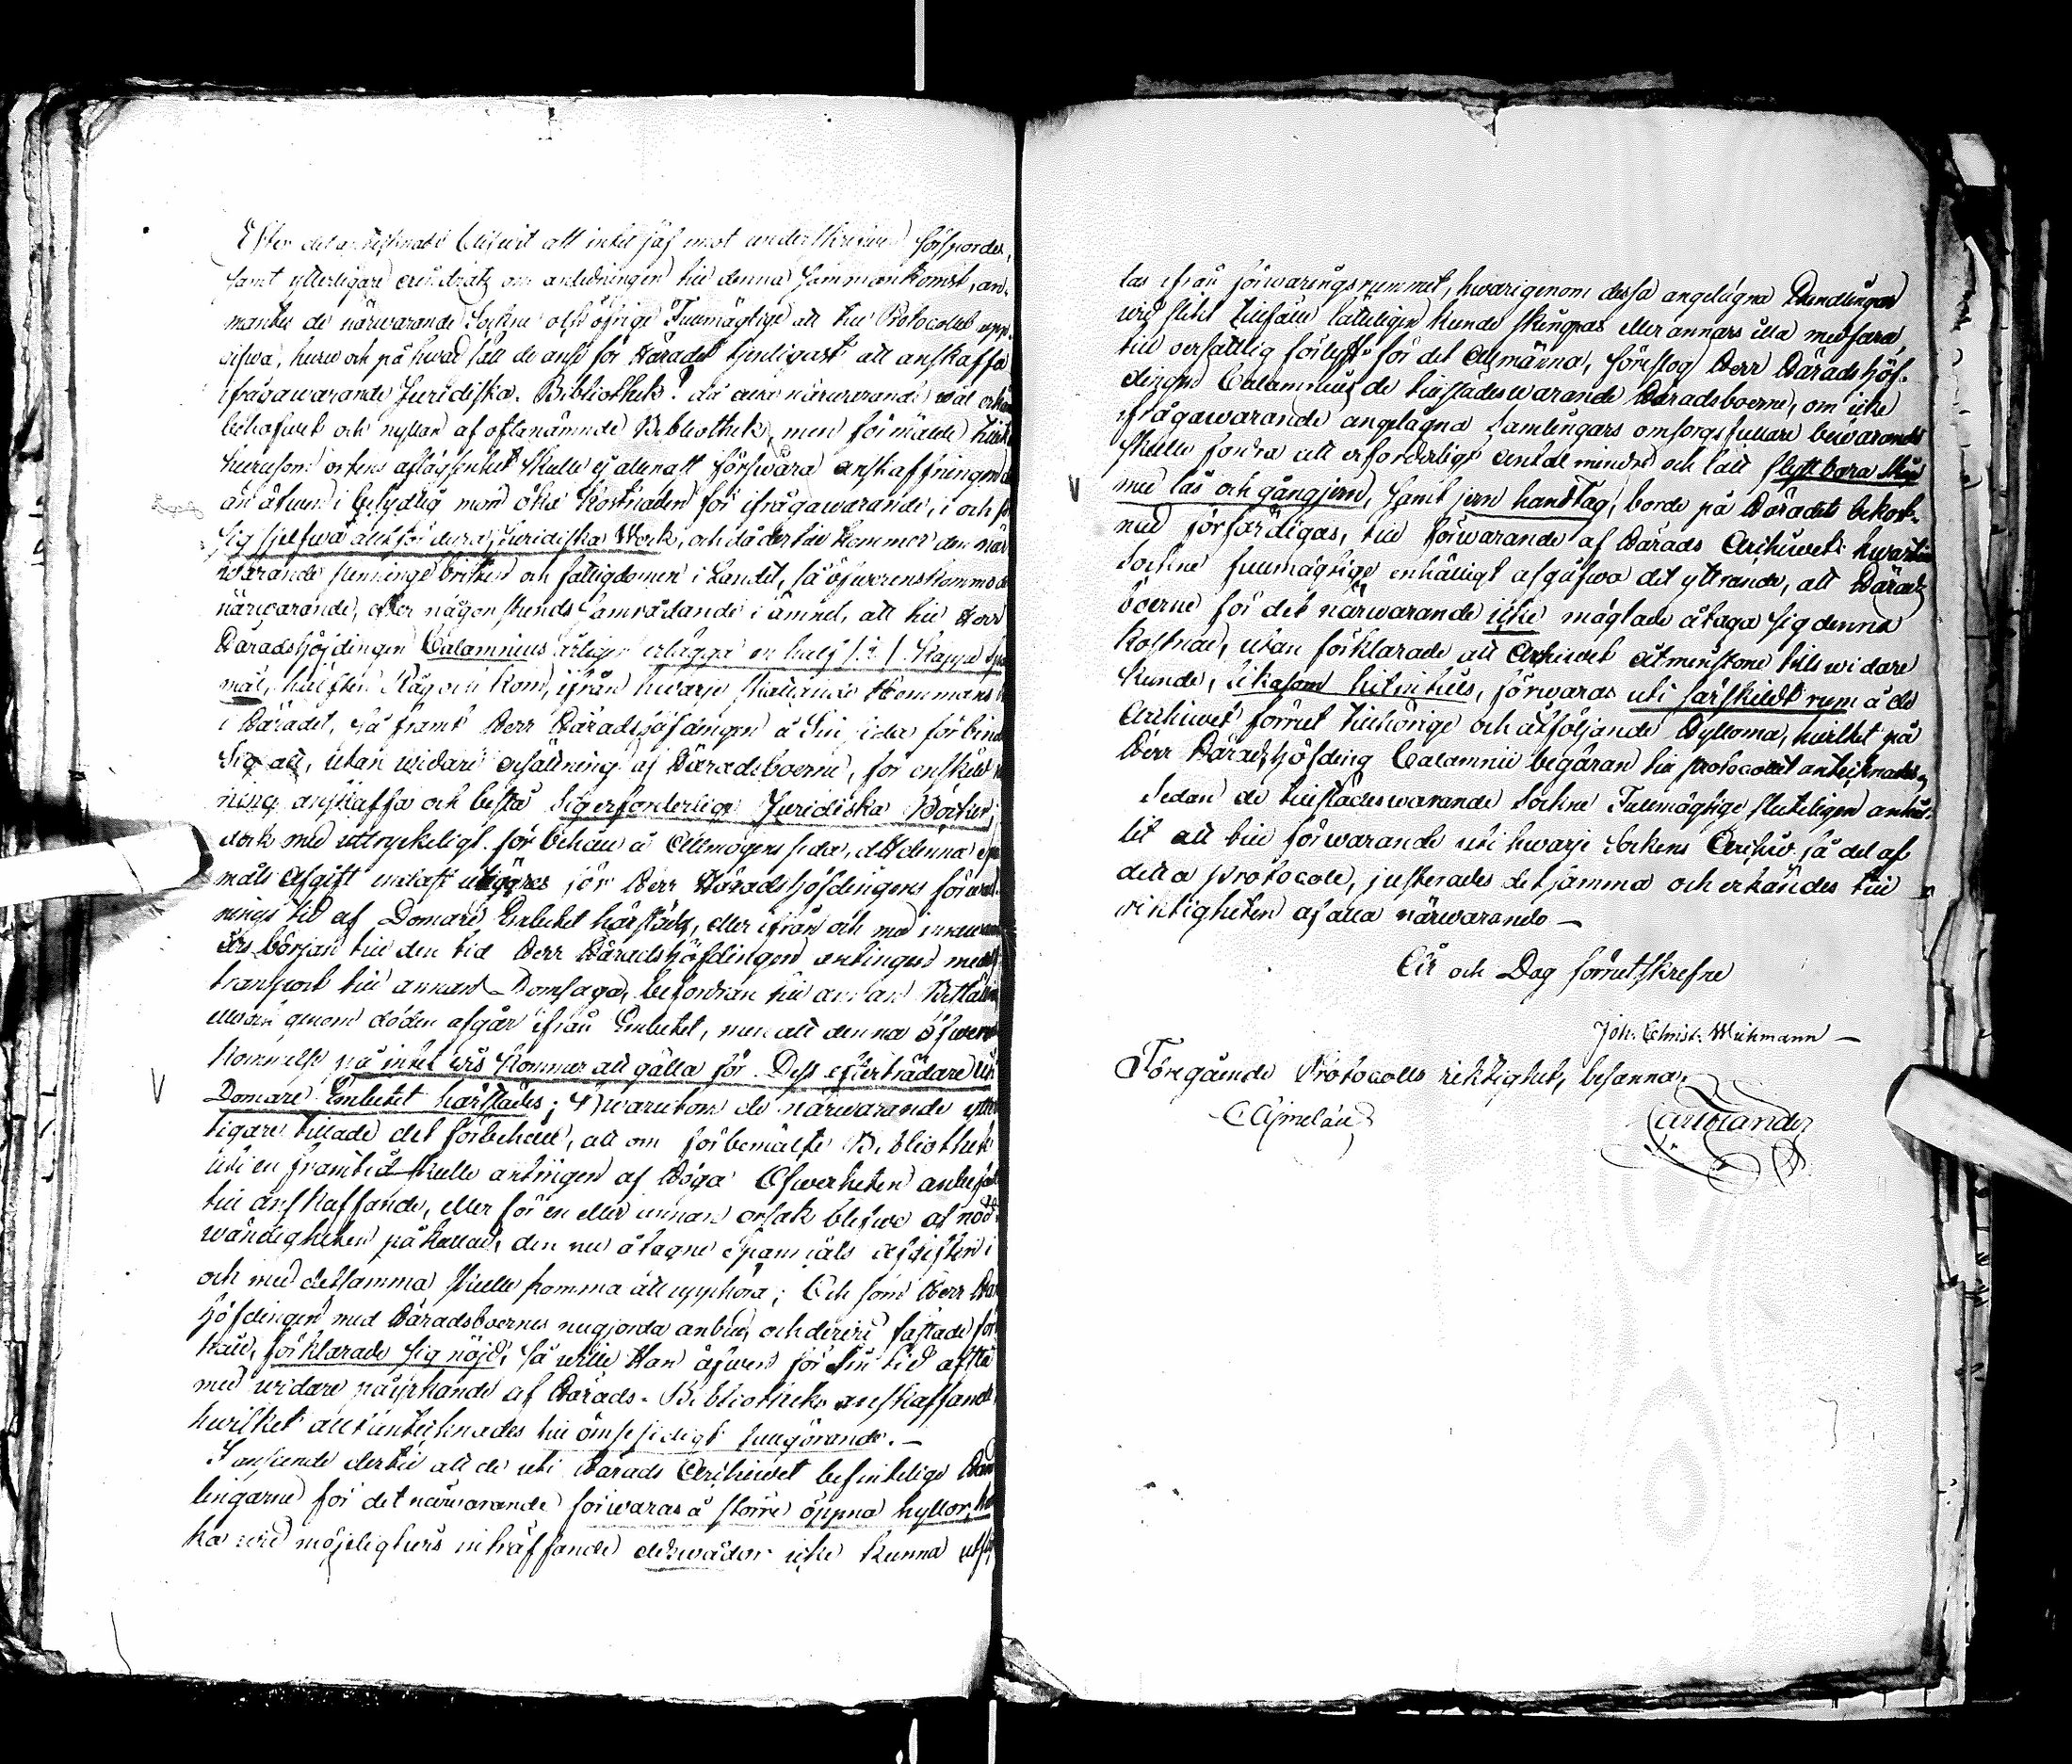 Efter det antecknats blifvit att intet jäf mot underskrifven förspordes,
samt ytterligare erindratz om anledningen till denna sammankomst, an-
mantes de närwarande Sockne och öfrige Fullmägtige att till Protocollet upp-
gifwa, huru och på hwad sätt de anse för Häradet tjenligast att anskaffa
ifrågawarande Juridiska Bibliothek? då alla närwarande wäl erkän
behofwet och nyttan af oftanämnde Bibliothek, men förmälde tillik
huruson ortens aflägsenhet skulle ej allenast förswåra anskaffningen
än äfwen i betydlig mon öka Kostnaden för ifrågawarande, i och för
sig sjelfwa allt för dyra, Juridiska Werk, och då dertill kommer den när
warande penninge bristen och fattigdomen i Landet, så öfwerenskommo de
närwarande, efter någon stunds samrådande i ämnet, att till Herr
Häradshöfdingen Calamnius årligen erlägga en half /: ½ :/ Kappe Span
mål, hälften Råg och Korn, ifrån hwarje skattlagde Hemmans
i Häradet, så framt Herr Häradshöfdingen å Sin sida förbinder
Sig att, utan widare ersättning af Häradsboerne, för enskild
ning anskaffa och bestå Sig erforderlige Juridiska Böcker,
dock med uttryckeligt förbehåll å Allmogens sida, att denna span
måls Afgift endast utgöres för Herr Häradshöfdingens förwalt-
nings tid af Domare Embetet härstädes, eller ifrån och med innewarande
års början till den tid Herr Häradshöfdingen antingen medelst
transport till annan Domsaga, befordran till annan Beställning
eller ock genom döden afgår ifrån Embetet, men att denna öfwerens
kommelse på intet wis kommer att gälla för Dess efterträdare uti
Domare Embetet härstädes; Hwarutom de närwarande ytter
ligare tillade det förbehåll, att om förbemälte Bibliothek
uti en framtid skulle antingen af Höga Öfwerheten anbefallas
till anskaffande, eller för en eller annan orsak blefwe af nöd-
wändigheten påkallad, den nu åtagne Spanmåls afgiften i
och med detsamma skulle komma att upphöra; Och som Herr Härads
höfdingen med Häradsboernes nu gjorda anbud, och deri fästade för
håll, förklarade sig nöjd, så wille Han äfwen för Sin tid afstå
med widare påyrkande af Härads-Bibliotheks anskaffande,
hwilket allt antecknades till ömsesidigt fullgörande. –
I anseende dertill att de uti Härads Archiwet befintelige Hand
lingarne för det närwarande förwaras å större öppna hyllor, hwil
ka wid möjeligtwis inträffande eldswådor icke kunna utfly
tas ifrån förwaringsrummet, hwarigenom dessa angelägna Handlingar
wid slikt tillfälle lätteligen kunde skingras eller annars illa medfara,
till oersättlig förlust för det Allmänna, föreslog Herr Häradshöf-
dingen Calamnius de tillstädeswarande Häradsboerne, om icke
ifrågawarande angelägna Samlingars omsorgsfullare bewarande
skulle fordra att erforderligt antal mindre och lätt flyttbara Skåp
med lås och gångjern, samt jern handtag, borde på Häradets bekost-
nad förfärdigas, till förwarande af Härads Archiwet: hwartill
Sockne fullmägtige enhälligt afgåfwo det yttrande, att Härads
boerne för det närwarande icke mägtade åtaga sig denna
Kostnad, utan förklarade att Archiwet åtminstone tills widare
kunde, likasom hitintills, förwaras uti särskildt rum å de
Archiwet förrut tillhörige och åtföljande Hyllorna, hwilket på
Herr Häradshöfding Calamnii begäran till protocollet antecknades,
Sedan de tillstädeswarande Sockne Fullmägtige sluteligen anhål-
lit att till förwarande uti hwarje Sockens Archiv få del af
detta protocoll, justerades detsamma och erkändes till
riktigheten af alla närwarande –
År och Dag förrutskrefne
Joh: Christ: Wichmann –
Föregående Protocolls riktighet, besanna,
C Ajmelaus